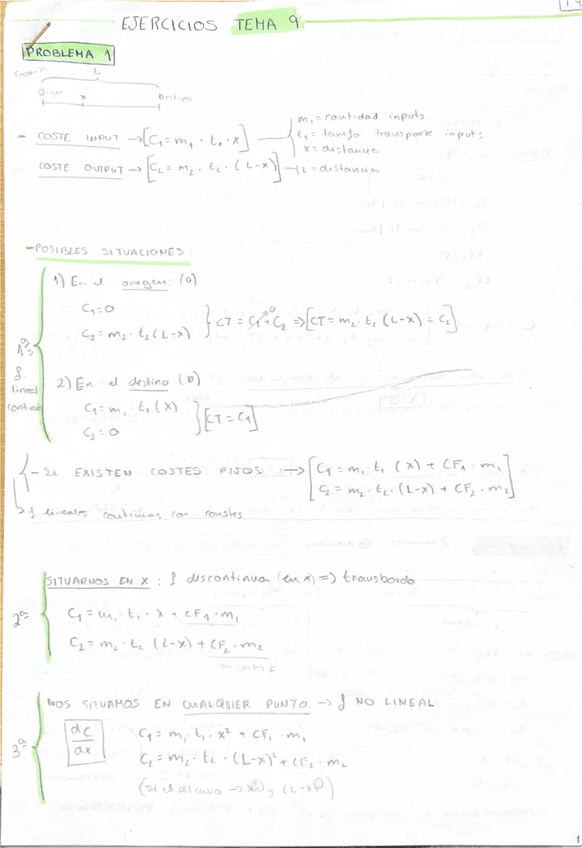 EJERCICIOS TEMA 9
PROBLEMA 1
L
x
- COSTE INPUT → [C₁ = m₁ · t₁ · x]
m₁ = cantidad inputs.
t₁ = tarifa transporte inputs
x = distancia
COSTE OUTPUT → [C₂ = m₂ · t₂ · (L-x)] L = distancia
- POSIBLES SITUACIONES:
1) En el origen: (0)
C₁ = 0
C₂ = m₂ · t₂ (L-x)
CT = C₁ + C₂ ⇒ [CT = m₂ · t₂ (L-x) = C₂]
1ª
f. lineal
2) En el destino (b)
C₁ = m₁ · t₁ (x)
C₂ = 0
[CT = C₁]
- SI EXISTEN COSTES FIJOS → [C₁ = m₁ · t₁ (x) + CF₁ · m₁
C₂ = m₂ · t₂ · (L-x) + CF₂ · m₂]
f lineales continuas con
2ª
SITUARNOS EN X : f discontinua (en x) ⇒ transbordo
C₁ = m₁ · t₁ · x + CF₁ · m₁
C₂ = m₂ · t₂ (L-x) + CF₂ · m₂
3ª
NOS SITUAMOS EN CUALQUIER PUNTO → f NO LINEAL
dC/dx
C₁ = m₁ · t₁ · x² + CF₁ · m₁
C₂ = m₂ · t₂ · (L-x)² + CF₂ · m₂
1